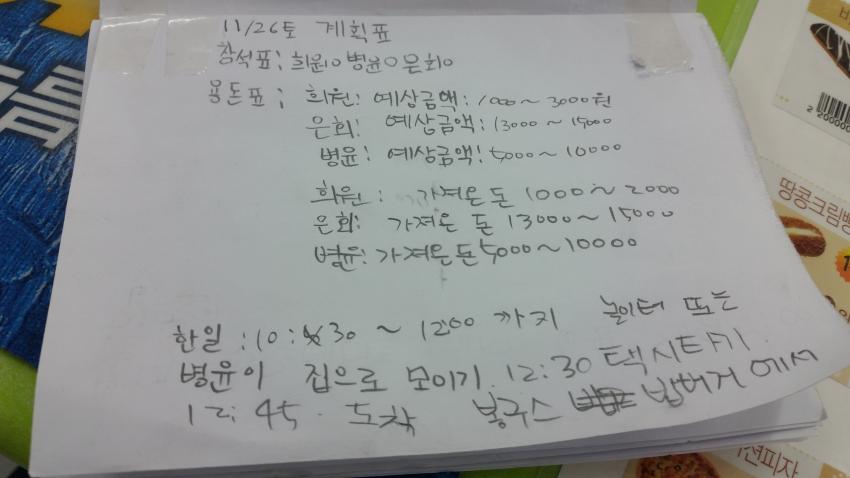 11/26토 계획표
참석표; 희원o 병윤o 은희o
용돈표; 희원: 예상금액: 1000~3000원
은희: 예상금액: 13000~15000
병윤: 예상금액: 5000~10000
희원: 가져온 돈 1000~2000
은희: 가져온 돈 13000~15000
병윤: 가져온돈 5000~10000
한일: 10:30~1200 까지 놀이터 또는
병윤이 집으로 모이기. 12:30 택시타기.
12:45. 도착 봉구스 밥버거에서
땅콩크림빵
피자